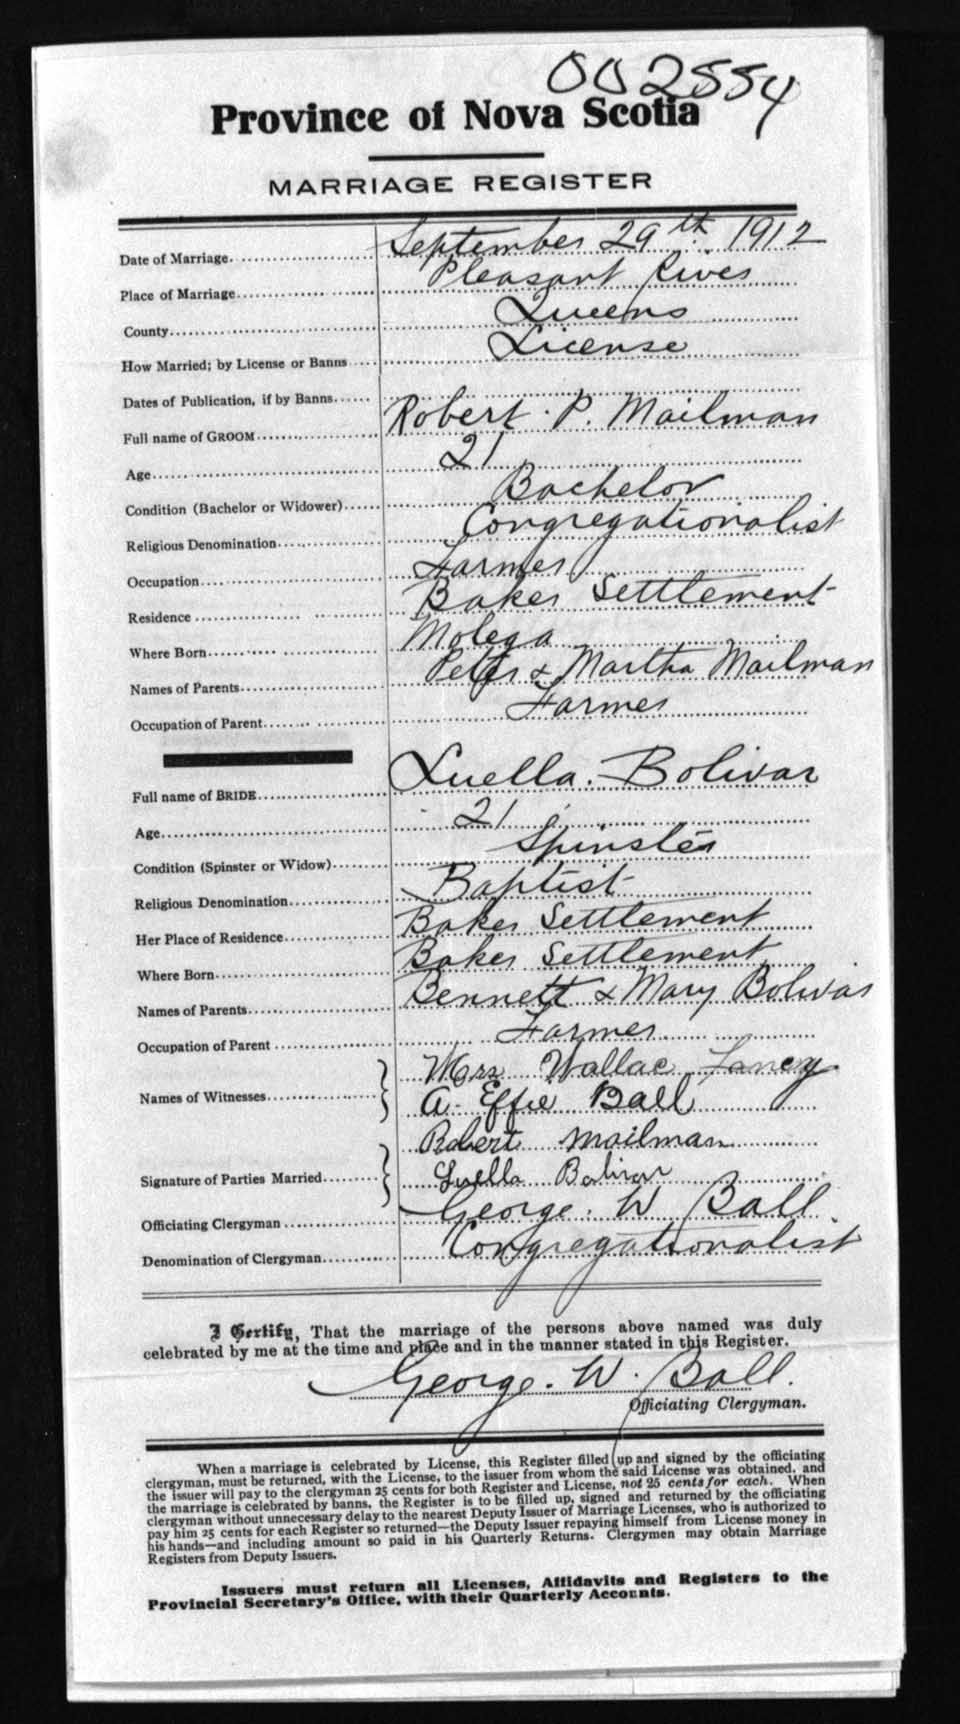 002554
Province of Nova Scotia
MARRIAGE REGISTER
Date of Marriage. September 29th. 1912
Place of Marriage Pleasant River
County Queens
How Married; by License or Banns License
Dates of Publication, if by Banns
Full name of GROOM Robert. P. Mailman
Age 21
Condition (Bachelor or Widower) Bachelor
Religious Denomination Congregationalist
Occupation Farmer
Residence Baker Settlement
Where Born Molega
Names of Parents Peter & Martha Mailman
Occupation of Parent Farmer
Full name of BRIDE Luella. Bolivar
Age 21
Condition (Spinster or Widow) Spinster
Religious Denomination Baptist
Her Place of Residence Baker Settlement
Where Born Baker Settlement
Names of Parents Bennett & Mary Bolivar
Occupation of Parent Farmer
Names of Witnesses Mrs Wallac
A. Effie Ball
Signature of Parties Married Robert Mailman
Luella Bolivar
Officiating Clergyman George. W Ball
Denomination of Clergyman Congregationalist
I Certify, That the marriage of the persons above named was duly
celebrated by me at the time and place and in the manner stated in this Register.
George. W. Ball.
Officiating Clergyman.
When a marriage is celebrated by License, this Register filled up and signed by the officiating
clergyman, must be returned, with the License, to the issuer from whom the said License was obtained, and
the issuer will pay to the clergyman 25 cents for both Register and License, not 25 cents for each. When
the marriage is celebrated by banns, the Register is to be filled up, signed and returned by the officiating
clergyman without unnecessary delay to the nearest Deputy Issuer of Marriage Licenses, who is authorized to
pay him 25 cents for each Register so returned—the Deputy Issuer repaying himself from License money in
his hands—and including amount so paid in his Quarterly Returns. Clergymen may obtain Marriage
Registers from Deputy Issuers.
Issuers must return all Licenses, Affidavits and Registers to the
Provincial Secretary's Office, with their Quarterly Accounts.